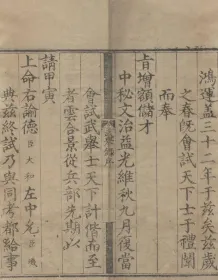 鴻運蓋三十二年于茲矣茲歲
之春旣會試天下士于禮闈
而奉
旨增額儲才
中秘文治益光維秋九月復當
會試武舉士天下計偕而至
者雲合景從兵部先期以
請甲寅
上命右諭德臣大和左中允臣
典茲終試乃與同考都給事